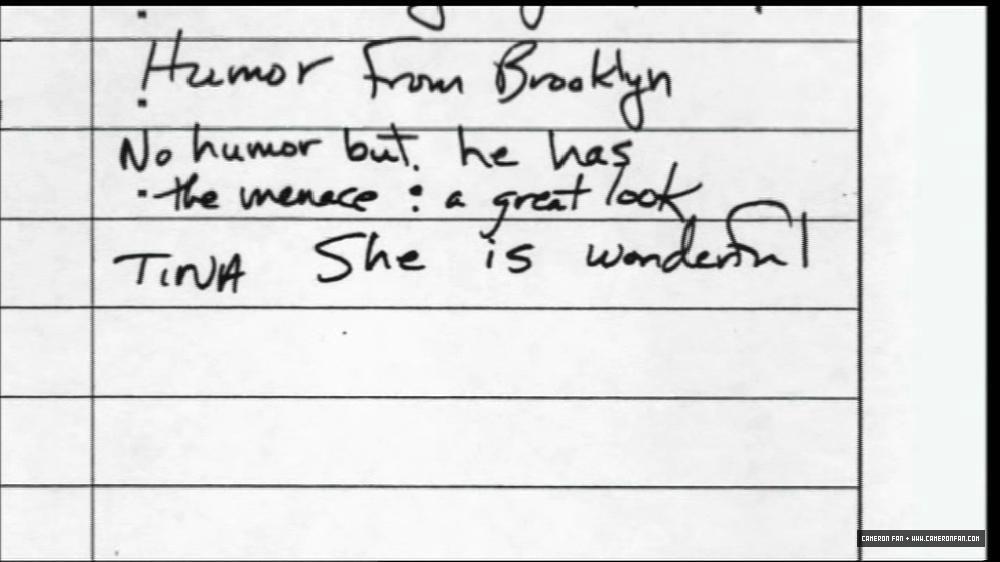 Humor From Brooklyn
No humor but. he has
the menace : a great look
TINA She is wonderful
CAMERON FAN • WWW.CAMERONFAN.COM